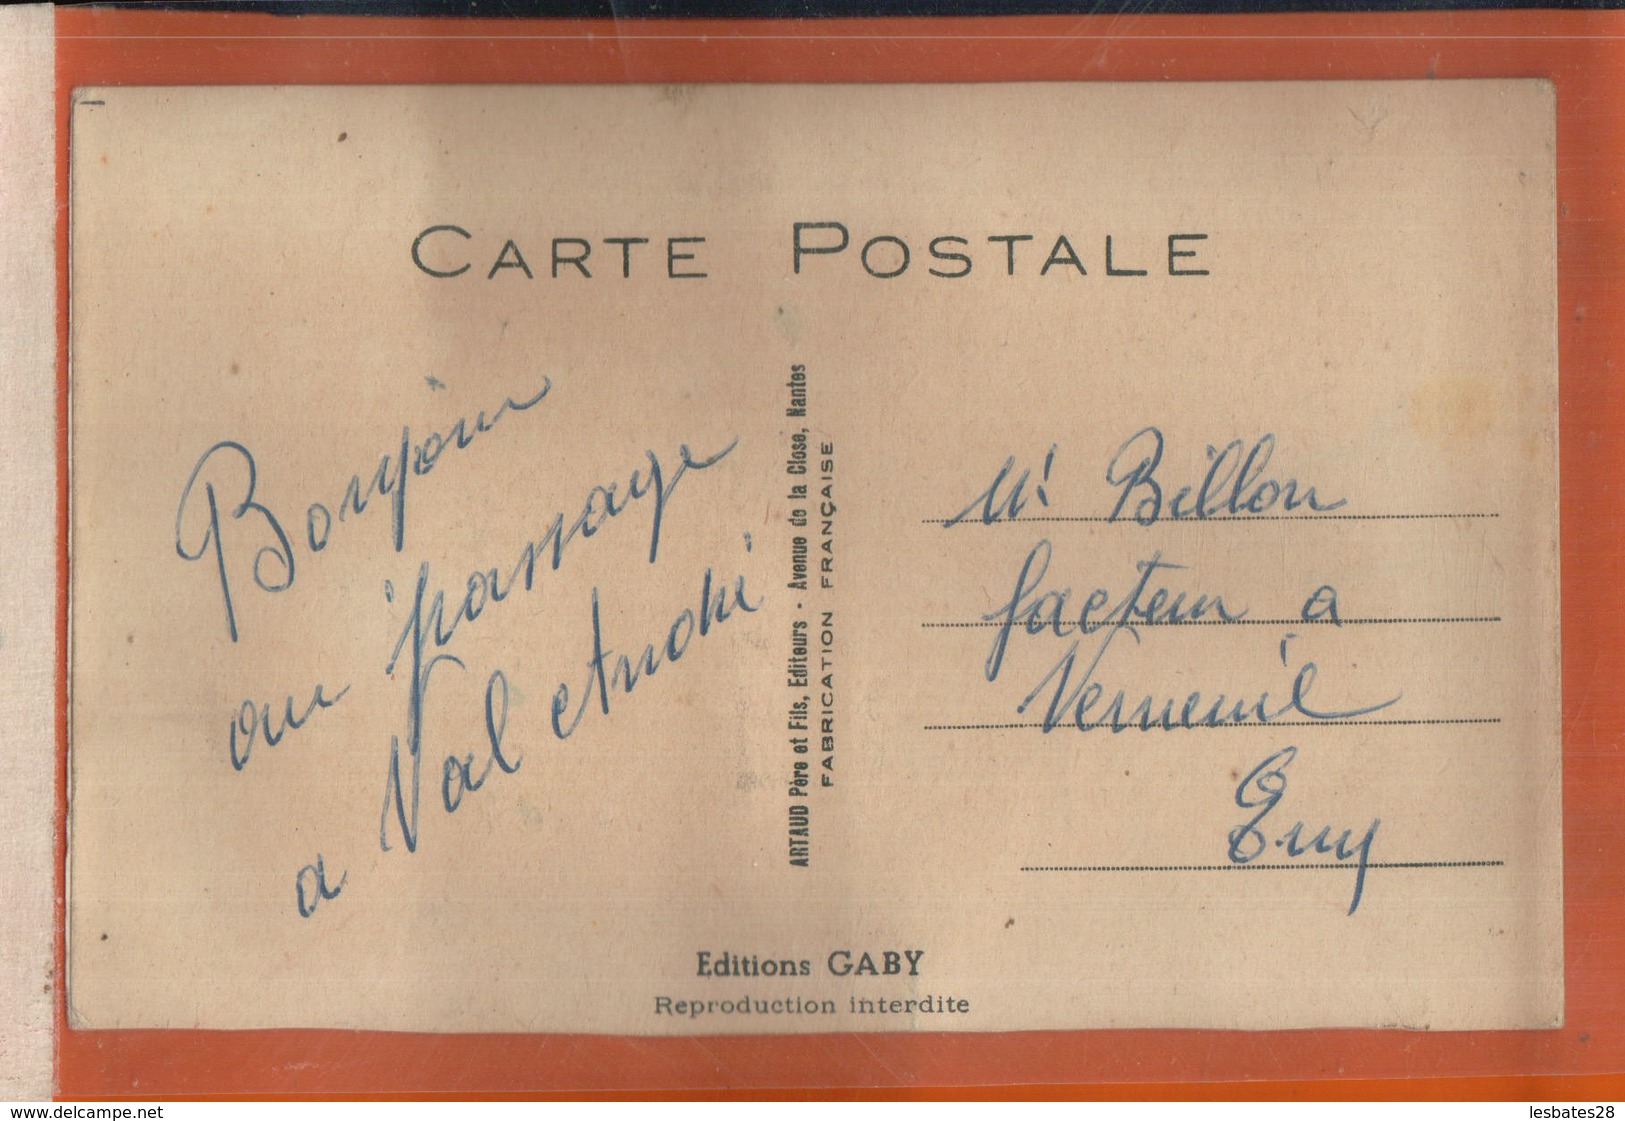 CARTE POSTALE
Bonjour
au passage
a Val André
ARTAUD Père et Fils, Editeurs - Avenue de la Close, Nantes
FABRICATION FRANÇAISE
Mr Billon
facteur a
Verneuil
Eure
Editions GABY
Reproduction interdite
www.delcampe.net
lesbates28